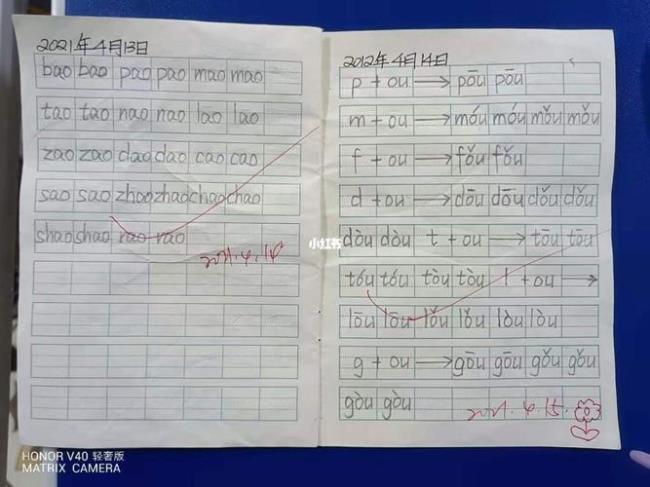 2021年4月13日
bao bao pao pao mao mao
tao tao nao nao lāo lāo
zao zao dao dao cao cao
sao sao zhao zhao chao chao
shao shao rao rao
2021.4.14
小红书
2012年4月14日
p + ou → pōu pōu
m + ou → móu móu mǒu mǒu
f + ou → fǒu fǒu
d + ou → dōu dōu dǒu dǒu
dòu dòu t + ou → tōu tōu
tóu tóu tòu tòu l + ou →
lōu lōu lǒu lǒu lòu lòu
g + ou → gōu gōu gǒu gǒu
gòu gòu
2021.4.15.
HONOR V40 轻奢版
MATRIX CAMERA